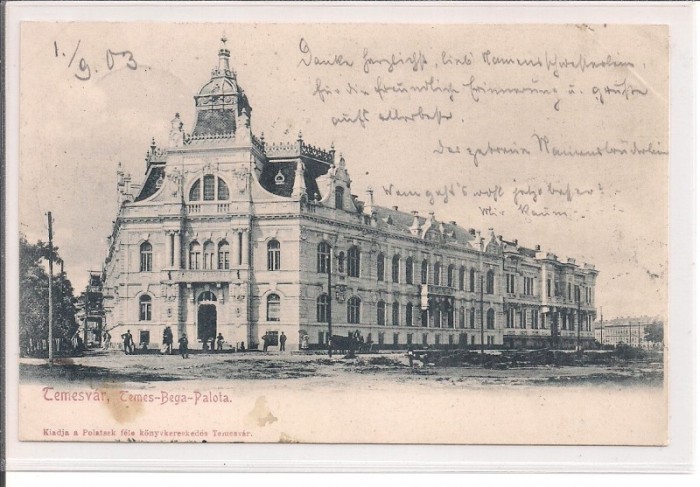 1./9. 03
Danke herzlichst, lieb's Namensschwesterlein,
für die freundliche Erinnerung u. grüße
aufs allerbeste.
Der getreue Namensbrüderlein
Wem geht's wohl jetzt besser?
Temesvár, Temes-Bega-Palota.
Kiadja a Polatsek féle könyvkereskedés Temesvár.